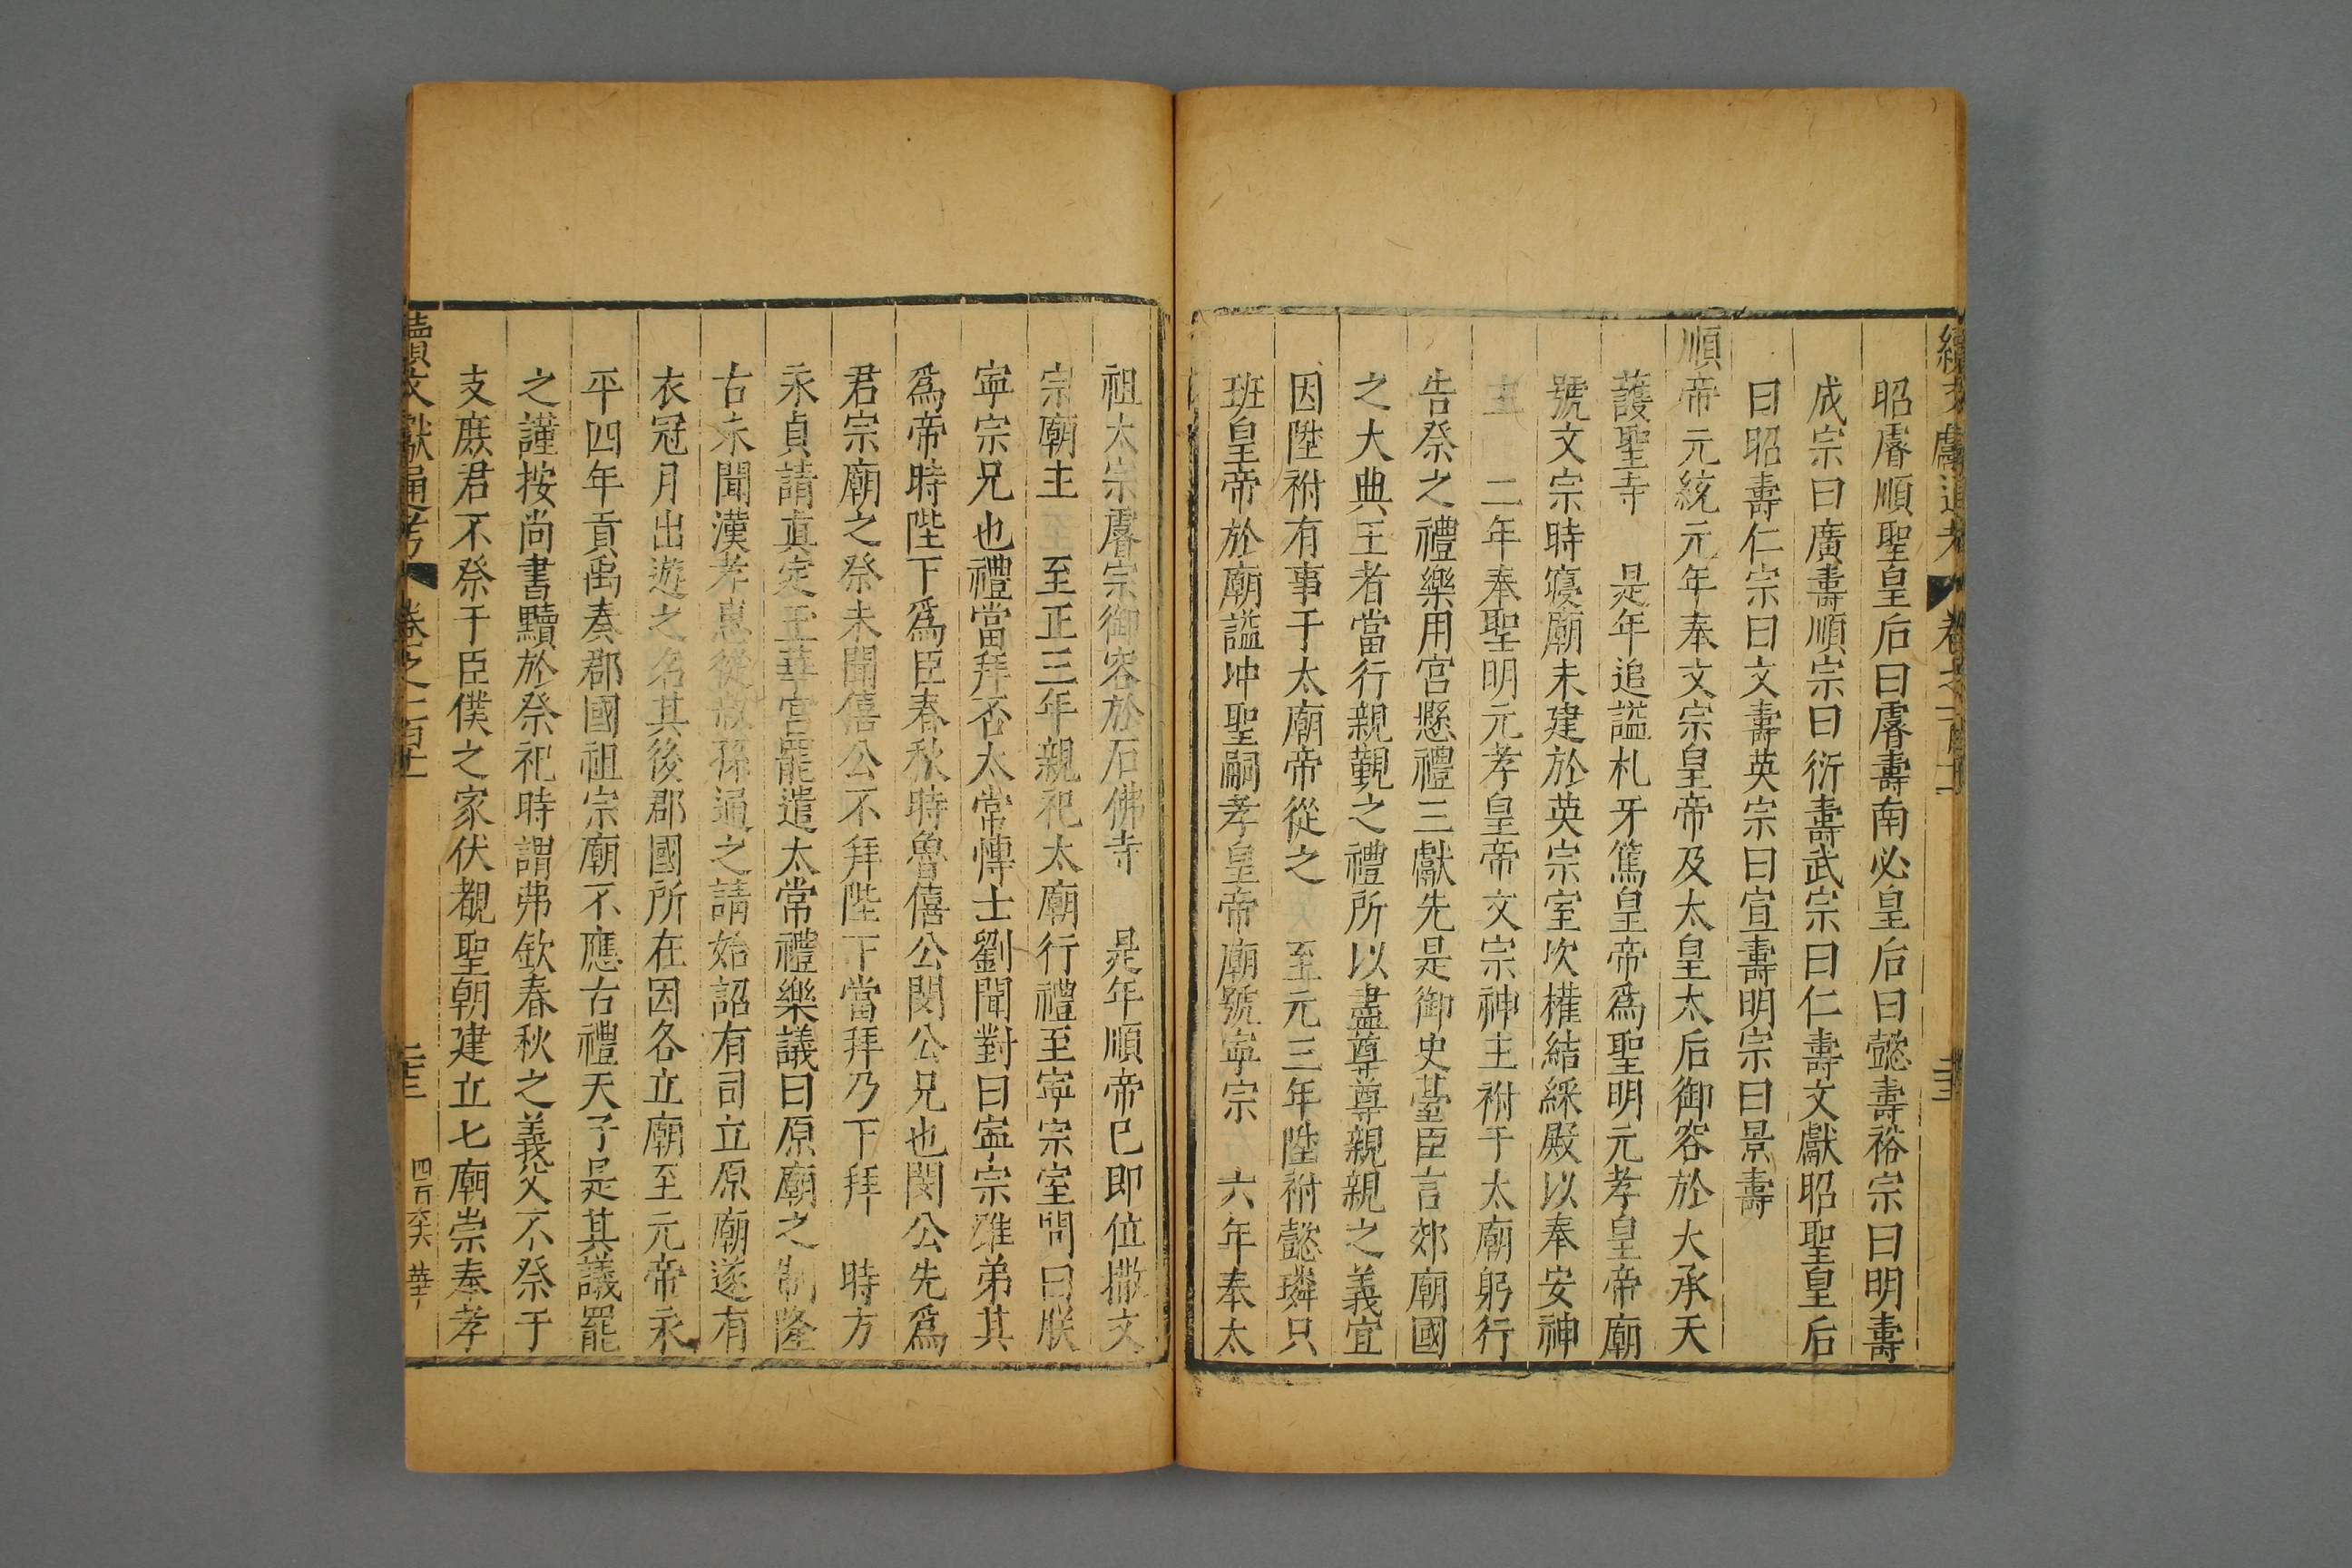 昭睿順聖皇后曰睿壽南必皇后曰懿壽裕宗曰明壽
成宗曰廣壽順宗曰衍壽武宗曰仁壽文獻昭聖皇后
曰昭壽仁宗曰文壽英宗曰宣壽明宗曰景壽
順帝元統元年奉文宗皇帝及太皇太后御容於大承天
護聖寺 是年追謚札牙篤皇帝爲聖明元孝皇帝廟
號文宗時寢廟未建於英宗室次權結綵殿以奉安神
主 二年奉聖明元孝皇帝文宗神主祔于太廟躬行
告祭之禮樂用宮懸禮三獻先是御史臺臣言郊廟國
之大典王者當行親覲之禮所以盡尊尊親親之義宜
因陞祔有事于太廟帝從之 至元三年陞祔懿璘只
班皇帝於廟謚冲聖嗣孝皇帝廟號寧宗 六年奉太
祖太宗睿宗御容於石佛寺 是年順帝已即位撤文
宗廟主 至正三年親祀太廟行禮至寧宗室問曰朕
寧宗兄也禮當拜否太常愽士劉聞對曰寧宗雖弟其
爲帝時陛下爲臣春秋時魯僖公閔公兄也閔公先爲
君宗廟之祭未聞僖公不拜陛下當拜乃下拜 時方
永貞請真定玉華宮罷遣太常禮樂議曰原廟之制隆
古未聞漢孝惠從叔孫通之請始詔有司立原廟遂有
衣冠月出遊之名其後郡國所在因各立廟至元帝永
平四年貢禹奏郡國祖宗廟不應古禮天子是其議罷
之謹按尚書黷於祭祀時謂弗欽春秋之義父不祭于
支庶君不祭于臣僕之家伏覩聖朝建立七廟崇奉孝
續文獻通考 卷之一百十
四百六 華